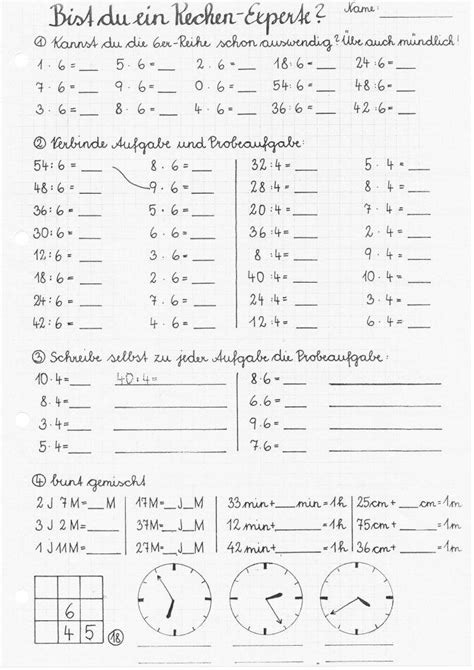 Bist du ein Rechen-Experte? Name:
① Kannst du die 6er-Reihe schon auswendig? Übe auch mündlich!
1 · 6 = __ 5 · 6 = __ 2 · 6 = __ 18 : 6 = __ 24 : 6 = __
7 · 6 = __ 9 · 6 = __ 0 · 6 = __ 54 : 6 = __ 48 : 6 = __
3 · 6 = __ 8 · 6 = __ 4 · 6 = __ 36 : 6 = __ 42 : 6 = __
② Verbinde Aufgabe und Probeaufgabe:
54 : 6 = __ 8 · 6 = __ 32 : 4 = __ 5 · 4 = __
48 : 6 = __ 9 · 6 = __ 28 : 4 = __ 8 · 4 = __
36 : 6 = __ 5 · 6 = __ 20 : 4 = __ 7 · 4 = __
30 : 6 = __ 6 · 6 = __ 36 : 4 = __ 2 · 4 = __
12 : 6 = __ 3 · 6 = __ 8 : 4 = __ 9 · 4 = __
18 : 6 = __ 2 · 6 = __ 40 : 4 = __ 10 · 4 = __
24 : 6 = __ 7 · 6 = __ 24 : 4 = __ 3 · 4 = __
42 : 6 = __ 4 · 6 = __ 12 : 4 = __ 6 · 4 = __
③ Schreibe selbst zu jeder Aufgabe die Probeaufgabe:
10 · 4 = __ 40 : 4 = __ 8 · 6 = __
8 · 4 = __ 6 · 6 = __
3 · 4 = __ 9 · 6 = __
5 · 4 = __ 7 · 6 = __
④ bunt gemischt
2 J 7 M = __ M 17 M = __ J __ M 33 min + __ min = 1h 25 cm + __ cm = 1m
3 J 2 M = __ 37 M = __ J __ M 12 min + __ = 1h 75 cm + __ = 1m
1 J 11 M = __ 27 M = __ J __ M 42 min + __ = 1h 36 cm + __ = 1m
6
4 5
18